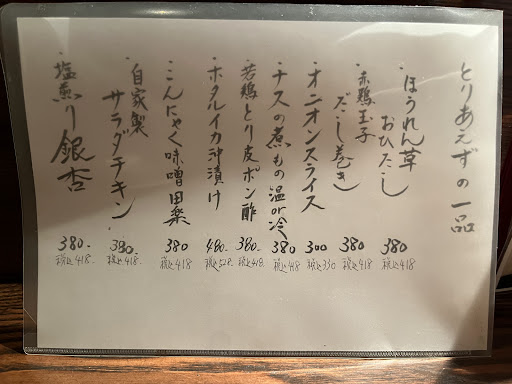 とりあえずの一品
・ほうれん草
おひたし
380
税込418
・赤鶏玉子
だし巻き
380
税込418
・オニオンスライス
300
税込330
・ナスの煮もの 温or冷
380
税込418
・若鶏とり皮ポン酢
380.
税込418
・ホタルイカ沖漬け
480.
税込528.
・こんにゃく味噌田楽
380
税込418
・自家製
サラダチキン.
380.
税込418
・塩煎り銀杏
380.
税込418